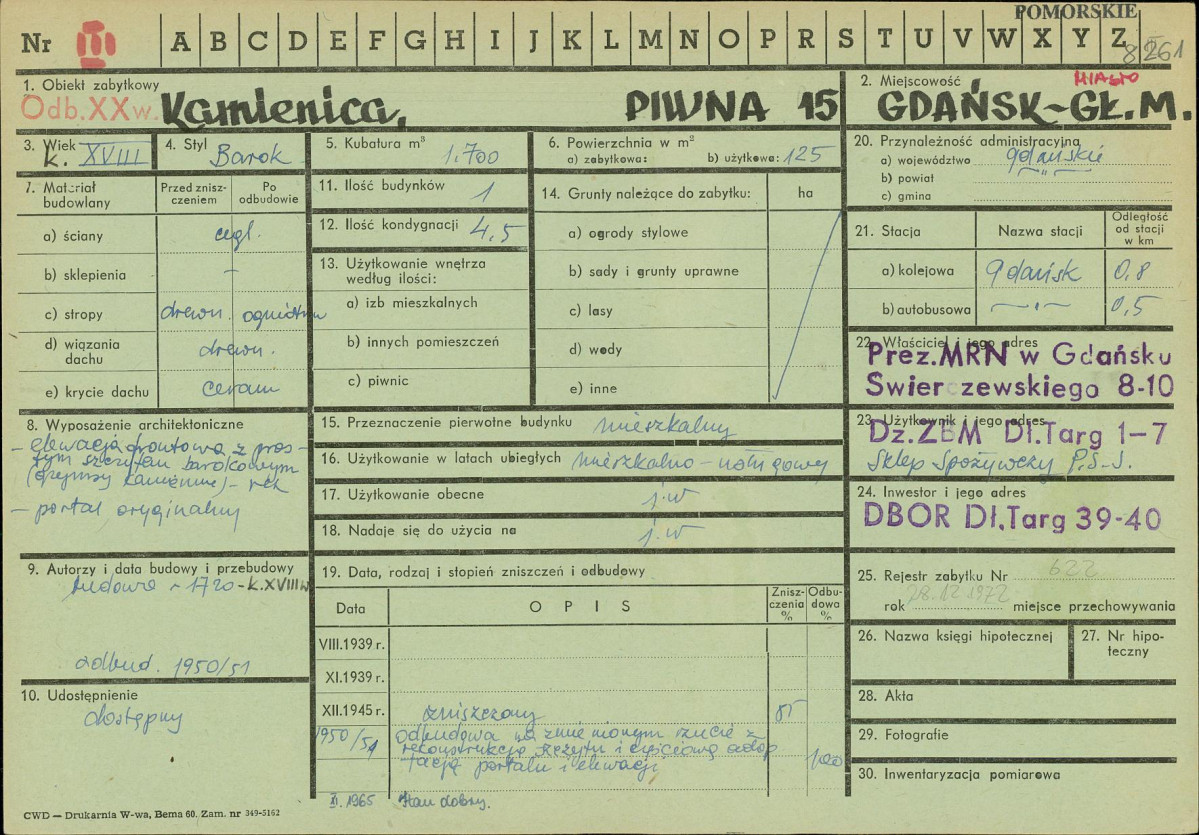 POMORSKIE
Nr III A B C D E F G H I J K L M N O P R S T U V W X Y Z
8261
1. Obiekt zabytkowy
Odb. XX w. Kamienica. PIWNA 15
2. Miejscowość MIASTO
GDAŃSK-GŁ.M.
3. Wiek
k. XVIII
4. Styl
Barok
5. Kubatura m³
1.700
6. Powierzchnia w m²
a) zabytkowa: b) użytkowa: 125
20. Przynależność administracyjna
a) województwo gdańskie
b) powiat — „ —
c) gmina
7. Materiał budowlany
Przed znisz-
czeniem
Po
odbudowie
a) ściany cegl.
b) sklepienia –
c) stropy drewn. ogniotrw
d) wiązania
dachu drewn.
e) krycie dachu ceram
11. Ilość budynków 1
12. Ilość kondygnacji 4,5
13. Użytkowanie wnętrza
według ilości:
a) izb mieszkalnych
b) innych pomieszczeń
c) piwnic
14. Grunty należące do zabytku: ha
a) ogrody stylowe
b) sady i grunty uprawne
c) lasy
d) wody
e) inne
21. Stacja Nazwa stacji
Odległość
od stacji
w km
a) kolejowa Gdańsk 0,8
b) autobusowa — „ — 0,5
22. Właściciel i jego adres
Prez.MRN w Gdańsku
Swierczewskiego 8-10
23. Użytkownik i jego adres
Dz.ZBM Dł.Targ 1-7
Sklep Spożywczy P.S.S.
24. Inwestor i jego adres
DBOR Dł.Targ 39-40
8. Wyposażenie architektoniczne
- elewacja frontowa z pros-
tym szczytem barokowym
(gzymsy kamienne) - rek
- portal oryginalny
15. Przeznaczenie pierwotne budynku mieszkalny
16. Użytkowanie w latach ubiegłych mieszkalno-usługowy
17. Użytkowanie obecne j.w
18. Nadaje się do użycia na j.w
9. Autorzy i data budowy i przebudowy
budowa ~ 1720 - k.XVIII w
odbud. 1950/51
10. Udostępnienie
dostępny
19. Data, rodzaj i stopień zniszczeń i odbudowy
Data OPIS
Znisz-
czenia
%
Odbu-
dowa
%
VIII.1939 r.
XI.1939 r.
XII.1945 r. zniszczony 85
1950/51 odbudowa na zmienionym rzucie z
rekonstrukcją szczytu i częściową adap
tacją portalu i elewacji 100
XI.1965 Stan dobry.
25. Rejestr zabytku Nr 622
rok 28.12.1972 miejsce przechowywania
26. Nazwa księgi hipotecznej
27. Nr hipo-
teczny
28. Akta
29. Fotografie
30. Inwentaryzacja pomiarowa
CWD — Drukarnia W-wa, Bema 60. Zam. nr 349-5162